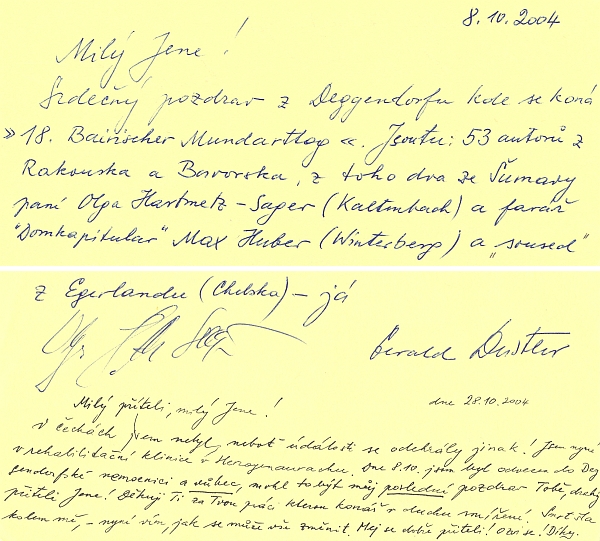 8.10.2004
Milý Jene!
Srdečný pozdrav z Deggendorfu kde se koná
»18. Bairischer Mundarttog«. Jsou tu: 53 autorů z
Rakouska a Bavorska, z toho dva ze Šumavy
paní Olga Hartmetz-Sager (Kaltenbach) a farář
"Domkapitular" Max Huber (Winterberg) a „soused"
z Egerlandu (Chebska) – já
Gerald Deistler
Milý příteli, milý Jene!
dne 28.10.2004
V Čechách jsem nebyl, neboť události se odehrály jinak! Jsem nyní
v rehabilitační klinice v Herzogenaurachu. Dne 8.10. jsem byl odvezen do Deg
gendorfské nemocnici a vůbec, mohl to být můj poslední pozdrav Tobě, drahý
příteli Jene! Děkuji Ti za Tvou práci kterou konáš v duchu smíření. Smrt stála
kolem mě, – nyní vím, jak se může vše změnit. Měj se dobře příteli! Ozvi se! Díky.